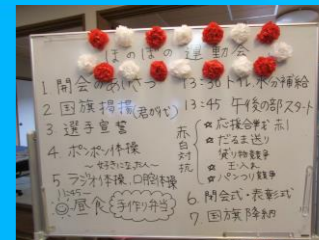 ほのぼの運動会
1 開会のあいさつ
2 国旗掲揚(君が代)
3 選手宣誓
4 ポンポン体操
5 ラジオ体操、口腔体操
11:45~
昼食 手作り弁当
13:30 トイレ、水分補給
13:45 午後の部スタート
赤白対抗
☆応援合戦
☆だるま送り
☆借り物競争
☆玉入れ
☆パンつり競争
6 閉会式・表彰式
7 国旗降納